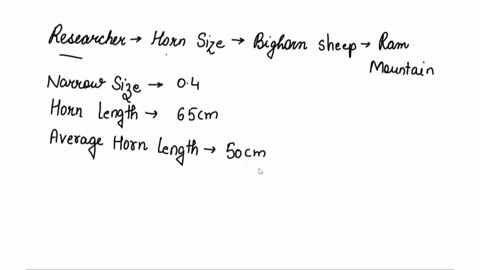 Researcher → Horn Size → Bighorn sheep → Ram
Mountain
Narrow Size → 0.4
Horn Length → 65cm
Average Horn Length → 50cm